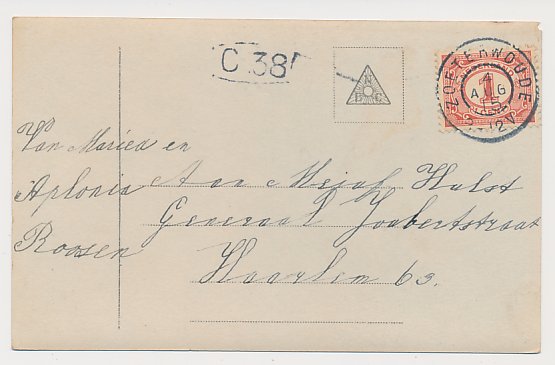 C 38
N
B C
ZOETERWOUDE
4
AUG
15
8-12V
NEDERLAND
1
Van Mariea en
Aplonia
Roosen
Aan Mejuf Hulst
Generaal Joubertstraat
Haarlem 63.